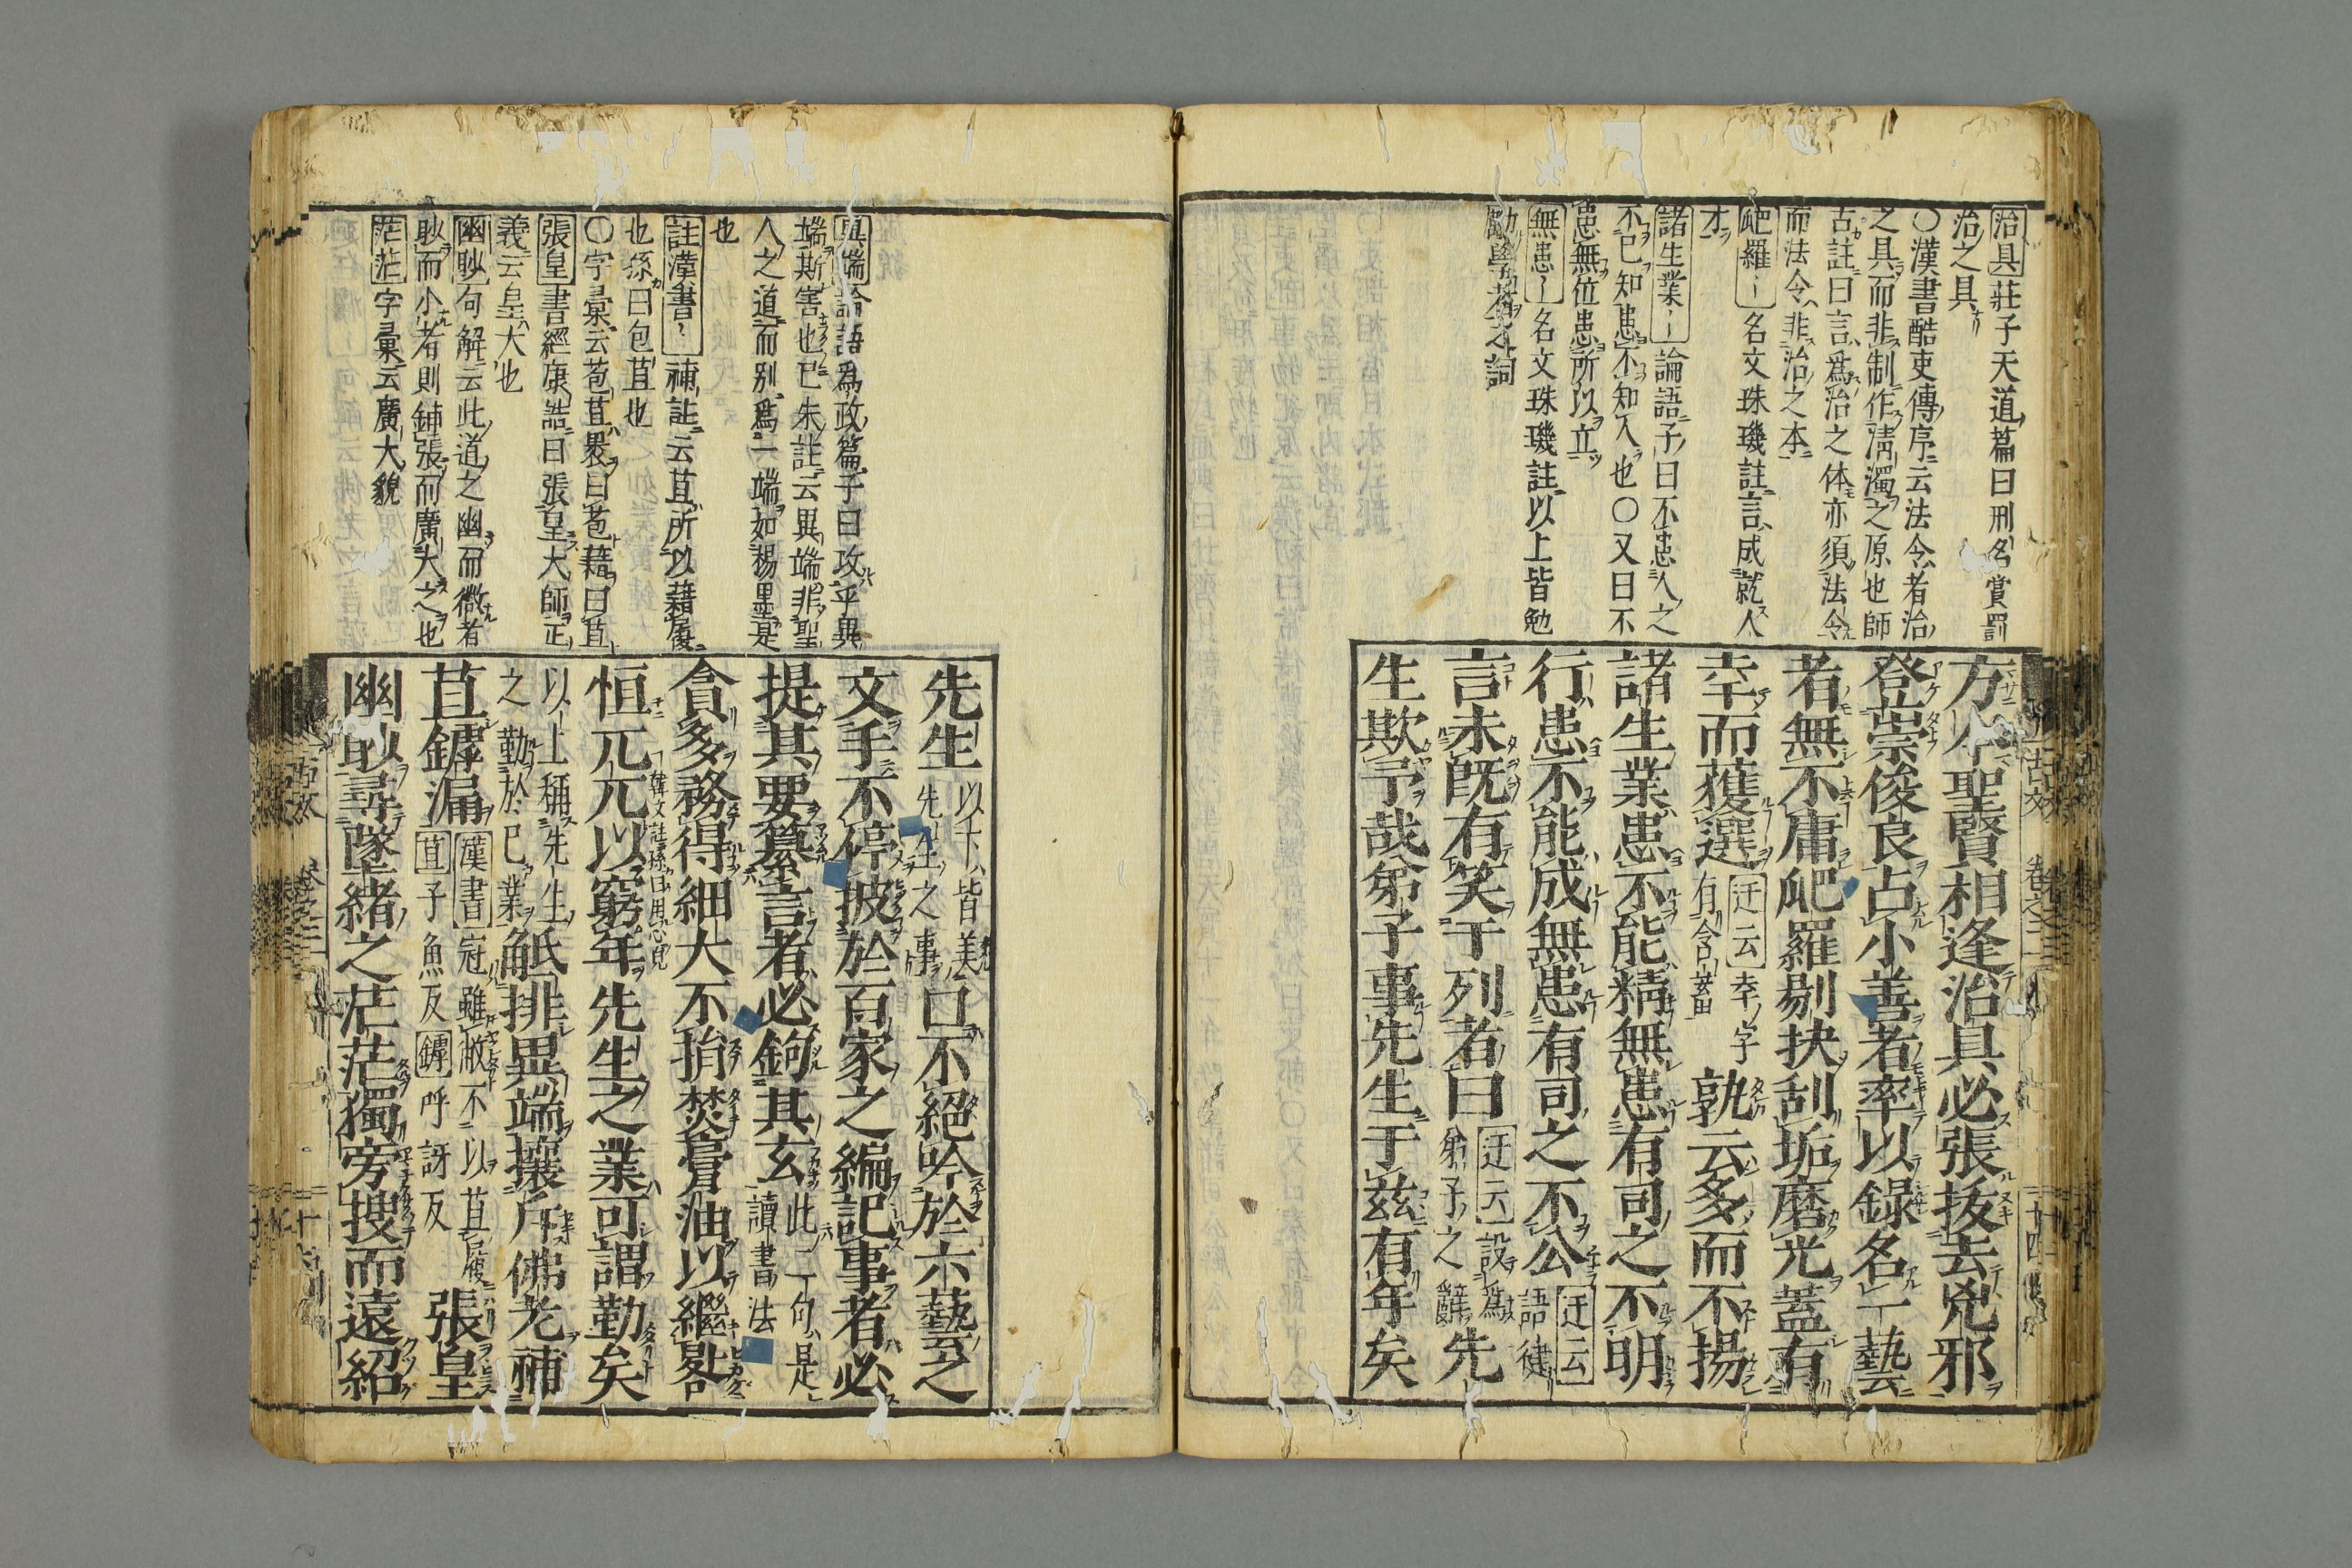 治具莊子天道篇曰刑名賞罰
治之具
〇漢書酷吏傳序云法令者治
之具而非制作淸濁之原也師
古註曰言爲治之体亦須法令
而法令非治之本
爬羅〡名文珠璣註言成就人
才
諸生業〡論語子曰不患人之
不已知患不知人也〇又曰不
患無位患所以立
無患〡名文珠璣註以上皆勉
勵學者之詞
方今聖賢相逢治具必張拔去兇邪
登崇俊良占小善者率以錄名一藝
者無不庸爬羅剔抉刮垢磨光蓋有
幸而獲選
迂云幸ノ字
有含蓄
孰云多而不揚
諸生業患不能精無患有司之不明
行患不能成無患有司之不公
迂云
語徤
言未旣有笑于列者曰
迂云設爲
弟子之辭
先
生欺予哉弟子事先生于茲有年矣
古文
卷之二
二十四
異端論語爲政篇子曰攻乎異
端斯害也已朱註云異端非聖
人之道而别爲一端如楊墨是
也
註漢書〡補註云苴所以藉履
也孫曰包苴也
〇字彙云苞苴裹曰苞藉曰苴
張皇書經康誥曰張皇大師正
義云皇大也
幽眇句解云此道之幽而微者
眇而小者則鋪張而廣大之也
茫茫字彙云廣大貌
先生
以下皆美
先生之事
口不絕吟於六藝之
文手不停披於百家之編記事者必
提其要纂言者必鉤其玄
此一句是
讀書法
貪多務得細大不捐焚膏油以繼晷
恒兀兀以窮年先生之業可謂勤矣
韓文註孫曰用心皃
以上稱先生
之勤於已業
觝排異端攘斥佛老補
苴罅漏
漢書冠雖敝不以苴履
苴子魚反罅呼訝反
張皇
幽眇尋墜緒之茫茫獨旁搜而遠紹
古文
卷之二